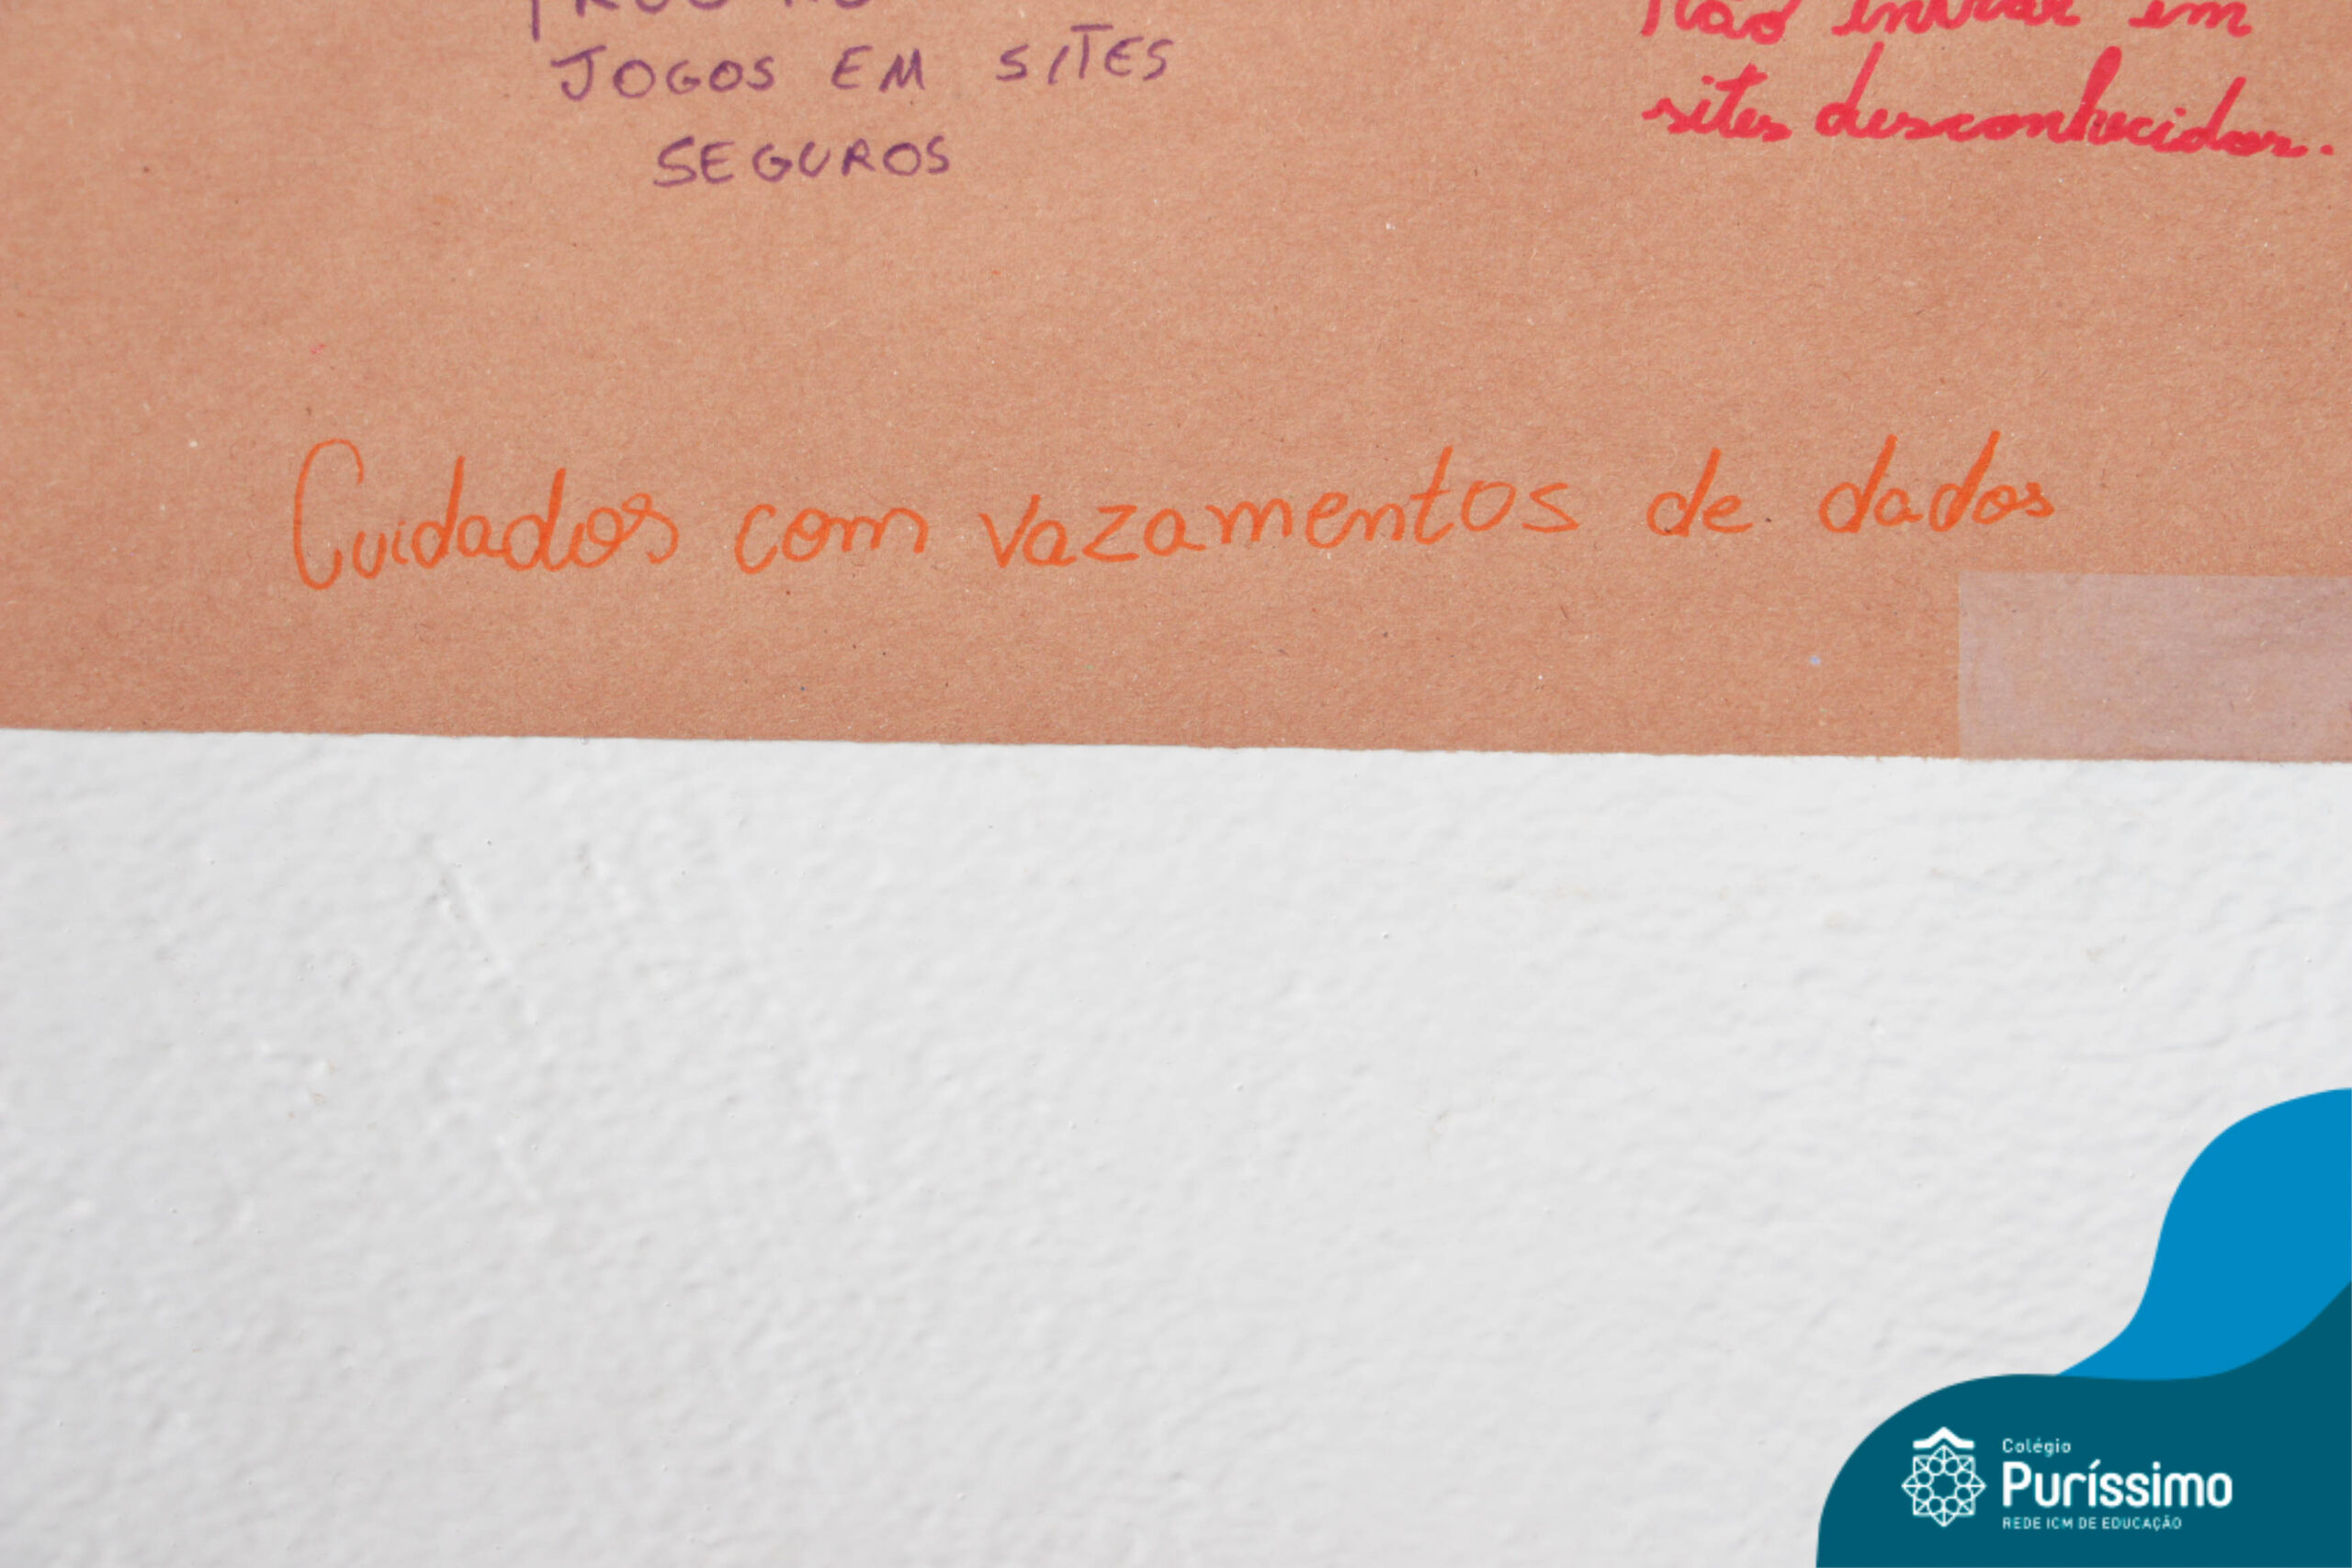 JOGOS EM SITES
SEGUROS
Não entrar em
sites desconhecidos.
Cuidados com vazamentos de dados
Colégio
Puríssimo
REDE ICM DE EDUCAÇÃO